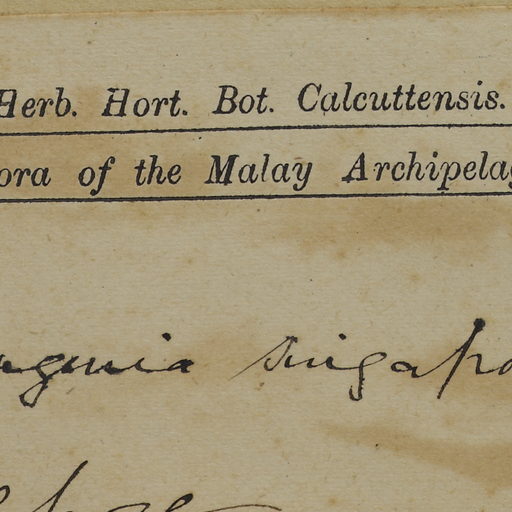 Herb. Hort. Bot. Calcuttensis.
ora of the Malay Archipelag
ugenia singapo